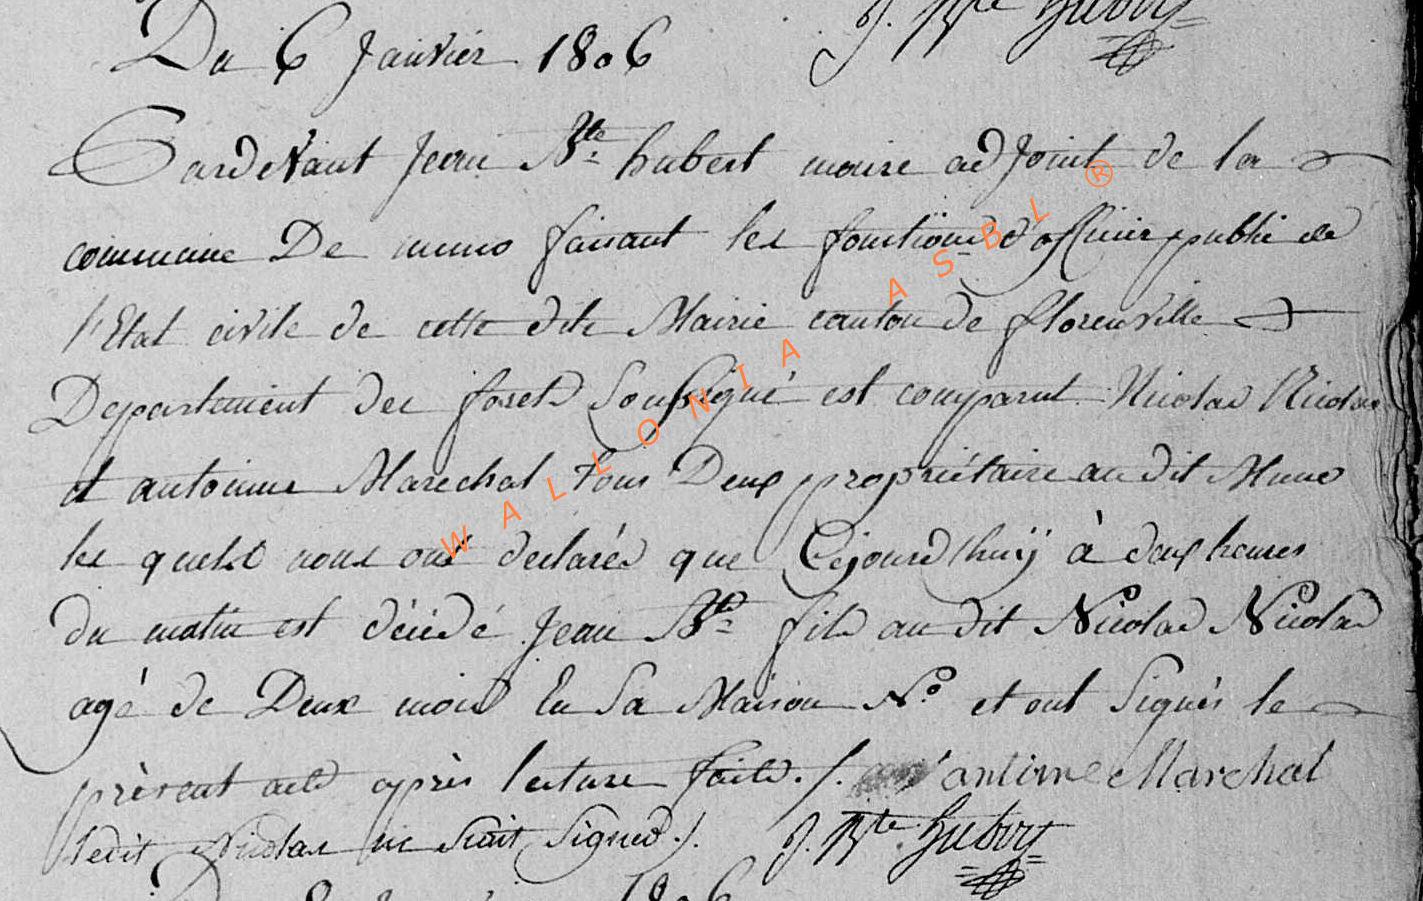 J. Bte Hubert
Du 6 Janvier 1806
Pardevant Jean Bte hubert maire adjoint de la
commune De muno faisant les fonctions d'officier public de
l'Etat civile de cette dite Mairie canton de florenville
Departement des forets Soussigné est comparut Nicolas Nicolas
et antoinne Marechal tous Deux proprietaire au dit Muno
les quels nous ont declarés que Cejourd'huÿ à deux heures
du matin est décédé Jean Bte fils au dit Nicolas Nicolas
agé de Deux mois En Sa Maison No et ont Signés le
présent acte après lecture faite ./. antoine Marchal
ledit Nicolas ne Scait Signer ./. J. Bte Hubert
1806
WALLONIA ASBL ®